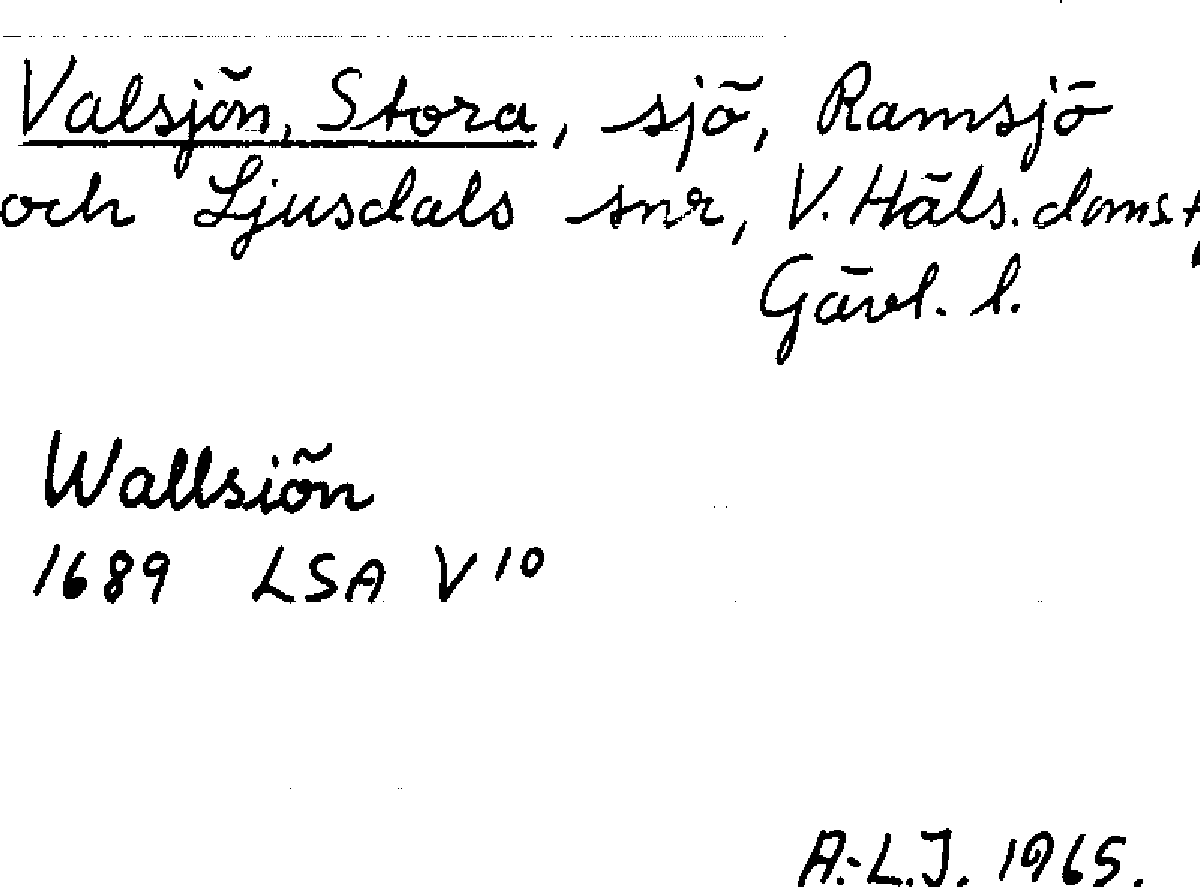 Valsjön, Stora, sjö, Ramsjö
och Ljusdals snr, V. Häls. doms.
Gävl. l.
Wallsiön
1689 LSA V 10
A.-L.J. 1965.